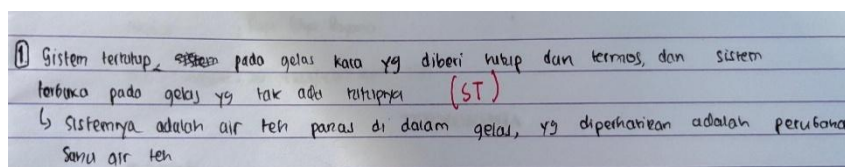 1 Sistem tertutup, pada gelas kaca yg diberi tutup dan termos, dan sistem
terbuka pada gelas yg tak ada tutupnya (ST)
↳ sistemnya adalah air teh panas di dalam gelas, yg diperhatikan adalah perubaha
Suhu air teh